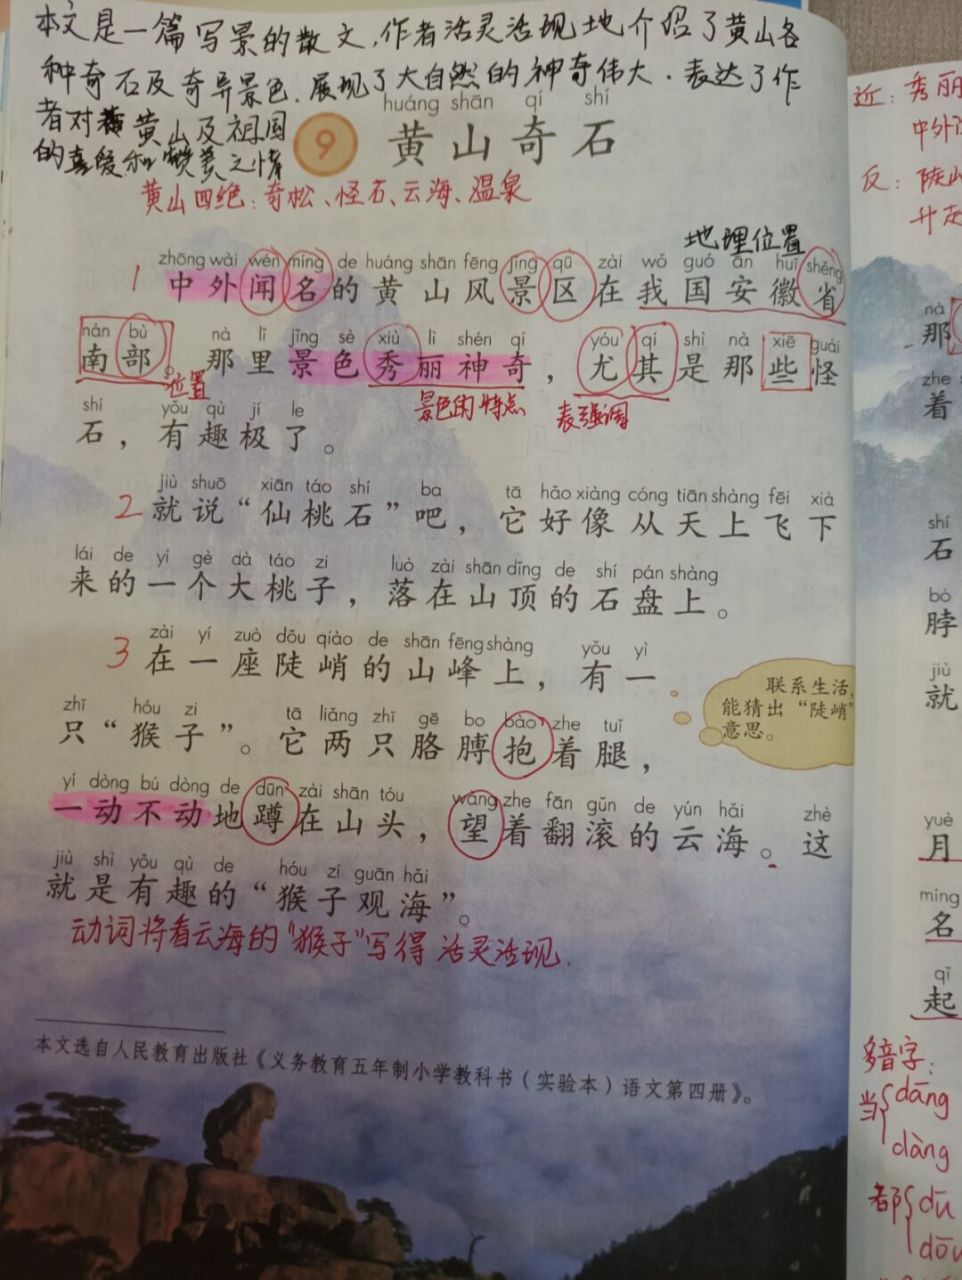 本文是一篇写景的散文,作者活灵活现地介绍了黄山各
种奇石及奇异景色.展现了大自然的神奇伟大.表达了作
者对黄山及祖国
的喜爱和赞美之情
huáng shān qí shí
9 黄山奇石
黄山四绝:奇松、怪石、云海、温泉
地理位置
zhōng wài wén míng de huáng shān fēng jǐng qū zài wǒ guó ān huī shěng
1 中外闻名的黄山风景区在我国安徽省
nán bù nà lǐ jǐng sè xiù lì shén qí yóu qí shì nà xiē guài
南部。那里景色秀丽神奇,尤其是那些怪
位置 景色的特点 表强调
shí yǒu qù jí le
石,有趣极了。
jiù shuō xiān táo shí ba tā hǎo xiàng cóng tiān shàng fēi xià
2 就说“仙桃石”吧,它好像从天上飞下
lái de yí gè dà táo zi luò zài shān dǐng de shí pán shàng
来的一个大桃子,落在山顶的石盘上。
zài yí zuò dǒu qiào de shān fēng shàng yǒu yì
3 在一座陡峭的山峰上,有一
zhī hóu zi tā liǎng zhī gē bo bào zhe tuǐ
只“猴子”。它两只胳膊抱着腿,
联系生活,
能猜出“陡峭”
意思。
yí dòng bú dòng de dūn zài shān tóu wàng zhe fān gǔn de yún hǎi zhè
一动不动地蹲在山头,望着翻滚的云海。这
jiù shì yǒu qù de hóu zi guān hǎi
就是有趣的“猴子观海”。
动词将看云海的“猴子”写得活灵活现.
本文选自人民教育出版社《义务教育五年制小学教科书(实验本)语文第四册》。
近:秀丽
中外
反:陡
升
nà
那
zhe
着
shí
石
bó
脖
jiù
就
yuè
月
míng
名
qǐ
起
多音字:
当{dāng
dàng
都{dū
dōu